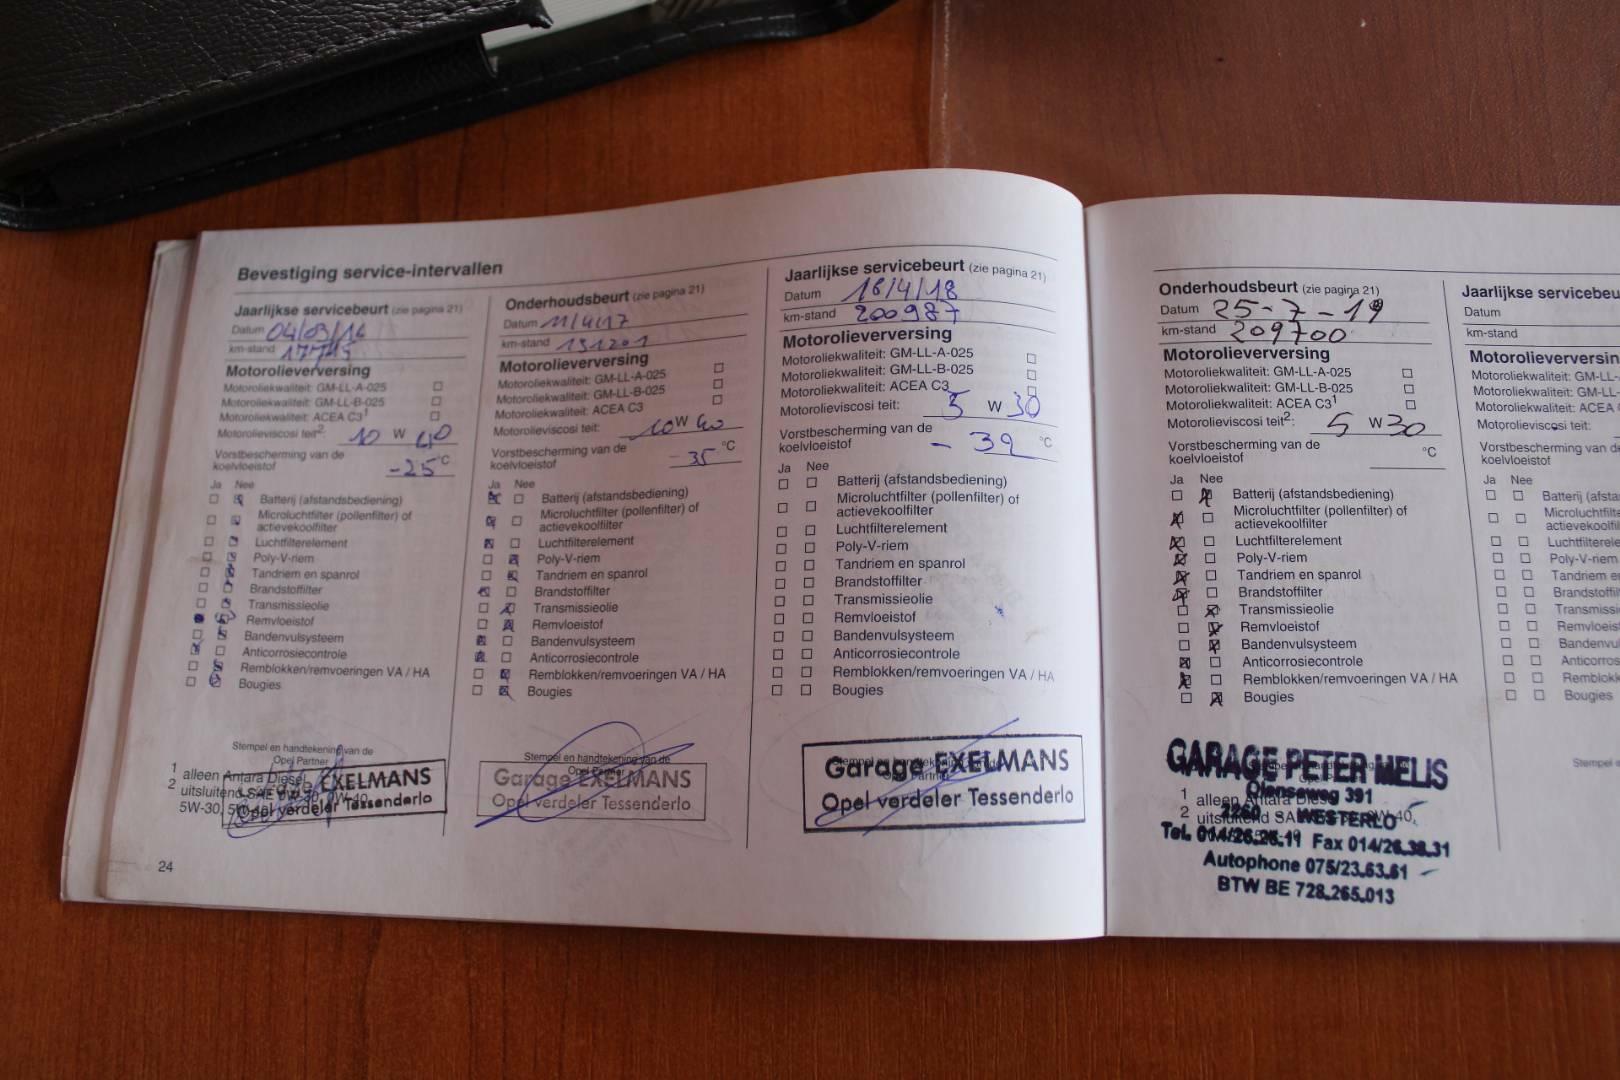 Bevestiging service-intervallen
Jaarlijkse servicebeurt (zie pagina 21)
Datum 04/03/16
km-stand
Motorolieverversing
Motoroliekwaliteit: GM-LL-A-025
Motoroliekwaliteit: GM-LL-B-025
Motoroliekwaliteit: ACEA C3¹
Motorolieviscosi teit²: 10 W 40
Vorstbescherming van de
koelvloeistof -25 °C
Ja Nee
Batterij (afstandsbediening)
Microluchtfilter (pollenfilter) of
actievekoolfilter
Luchtfilterelement
Poly-V-riem
Tandriem en spanrol
Brandstoffilter
Transmissieolie
Remvloeistof
Bandenvulsysteem
Anticorrosiecontrole
Remblokken/remvoeringen VA / HA
Bougies
Stempel en handtekening van de
Opel Partner
1 alleen Antara Diesel
2 uitsluitend SAE 0W-30, 0W-40,
5W-30,
EXELMANS
Opel verdeler Tessenderlo
24
Onderhoudsbeurt (zie pagina 21)
Datum 11/4/17
km-stand 191201
Motorolieverversing
Motoroliekwaliteit: GM-LL-A-025
Motoroliekwaliteit: GM-LL-B-025
Motoroliekwaliteit: ACEA C3
Motorolieviscosi teit: 10 W 40
Vorstbescherming van de
koelvloeistof -35 °C
Ja Nee
Batterij (afstandsbediening)
Microluchtfilter (pollenfilter) of
actievekoolfilter
Luchtfilterelement
Poly-V-riem
Tandriem en spanrol
Brandstoffilter
Transmissieolie
Remvloeistof
Bandenvulsysteem
Anticorrosiecontrole
Remblokken/remvoeringen VA / HA
Bougies
Stempel en handtekening van de
Opel Partner
Garage EXELMANS
Opel verdeler Tessenderlo
Jaarlijkse servicebeurt (zie pagina 21)
Datum 18/4/18
km-stand 200987
Motorolieverversing
Motoroliekwaliteit: GM-LL-A-025
Motoroliekwaliteit: GM-LL-B-025
Motoroliekwaliteit: ACEA C3
Motorolieviscosi teit: 5 W 30
Vorstbescherming van de
koelvloeistof - 39 °C
Ja Nee
Batterij (afstandsbediening)
Microluchtfilter (pollenfilter) of
actievekoolfilter
Luchtfilterelement
Poly-V-riem
Tandriem en spanrol
Brandstoffilter
Transmissieolie
Remvloeistof
Bandenvulsysteem
Anticorrosiecontrole
Remblokken/remvoeringen VA / HA
Bougies
Garage EXELMANS
Opel verdeler Tessenderlo
Onderhoudsbeurt (zie pagina 21)
Datum 25-7-19
km-stand 209700
Motorolieverversing
Motoroliekwaliteit: GM-LL-A-025
Motoroliekwaliteit: GM-LL-B-025
Motoroliekwaliteit: ACEA C3¹
Motorolieviscosi teit²: 5 W 30
Vorstbescherming van de
koelvloeistof °C
Ja Nee
Batterij (afstandsbediening)
Microluchtfilter (pollenfilter) of
actievekoolfilter
Luchtfilterelement
Poly-V-riem
Tandriem en spanrol
Brandstoffilter
Transmissieolie
Remvloeistof
Bandenvulsysteem
Anticorrosiecontrole
Remblokken/remvoeringen VA / HA
Bougies
GARAGE PETER MELIS
Olenseweg 391
2260 - WESTERLO
Tel. 014/26.26.19 Fax 014/26.38.31
Autophone 075/23.63.61
BTW BE 728.265.013
1 alleen Antara Diesel
2 uitsluitend
Jaarlijkse servicebeu
Datum
km-stand
Motorolieverversin
Motoroliekwaliteit: GM-LL-
Motoroliekwaliteit: GM-LL-
Motoroliekwaliteit: ACEA
Motorolieviscosi teit:
Vorstbescherming van de
koelvloeistof
Ja Nee
Batterij (afsta
Microluchtfilte
actievekoolfil
Luchtfilterele
Poly-V-riem
Tandriem en
Brandstoffilt
Transmissi
Remvloeis
Bandenvu
Anticorros
Remblokk
Bougies
Stempel e